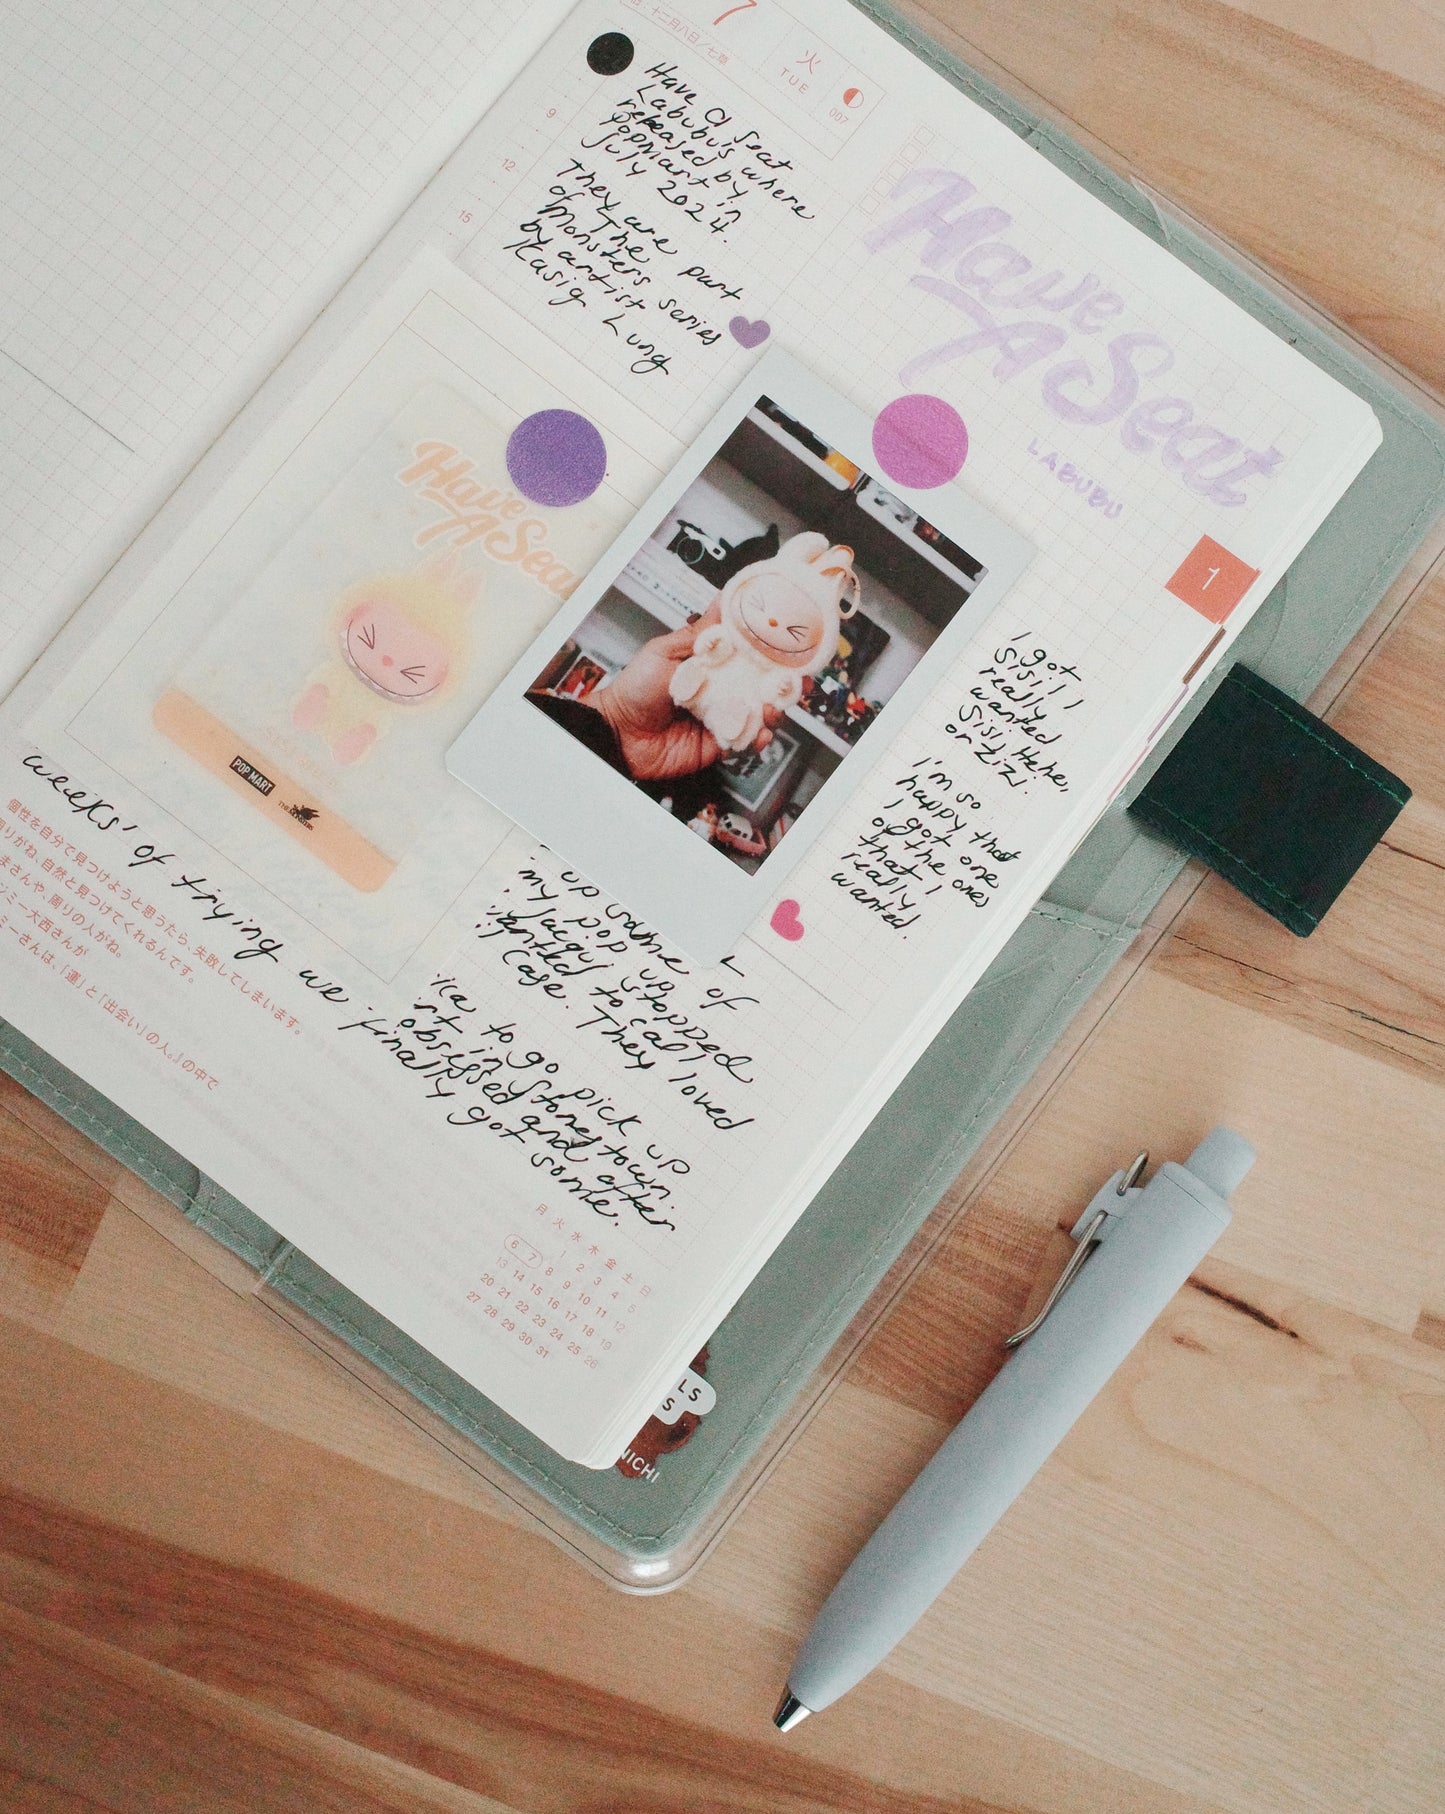 7
十二月八日/七草
火
TUE
007
Have a Seat
Labubu's where
released by
PopMart in
July 2024.
They are part
of The
Monsters series
by artist
Kasig Lung
9
12
15
Have
A Seat
LABUBU
1
Have
A Sea
POP MART
THE MONSTERS
I got
Sisi! I
really
wanted
Sisi, Hehe,
or Zizi.
I'm so
happy that
I got one
of the ones
that I
really
wanted.
up some of
my pop up
Jacqui stopped
wanted to call
case. They loved
to go pick up
rt in Stonestown.
obsessed and after
finally got some.
weeks' of trying we finally
個性を自分で見つけようと思うたら、失敗してしまいます。
周りがね、自然と見つけてくれるんです。
まさんや、周りの人がね。
ツミー大西さんが
ミーさんは、「運」と「出会い」の人。』の中で
月 火 水 木 金 土 日
1 2 3 4 5
6 7 8 9 10 11 12
13 14 15 16 17 18 19
20 21 22 23 24 25 26
27 28 29 30 31
LS
S
NICHI